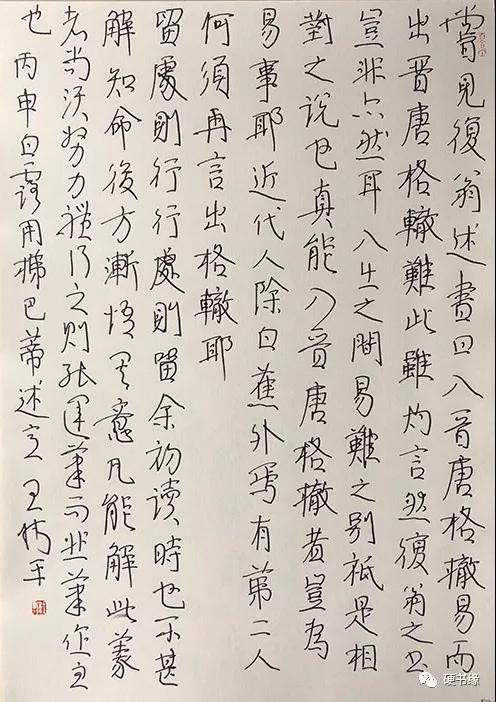 嘗見復翁述書曰入晋唐格撤易而
出晋唐格轍難此雖灼言然復翁之书
豈非亦然耳入出之間易難之别祗是相
對之说也真能入晋唐格撤者豈為
易事耶近代人除白蕉外焉有第二人
何須再言出格轍耶
留處則行行處則留余初读時也不甚
解知命後方漸悟其意凡能解此義
者尚须努力践行之则能運筆而非筆作主
也丙申白露用梯巴蒂述之王
硬书缘